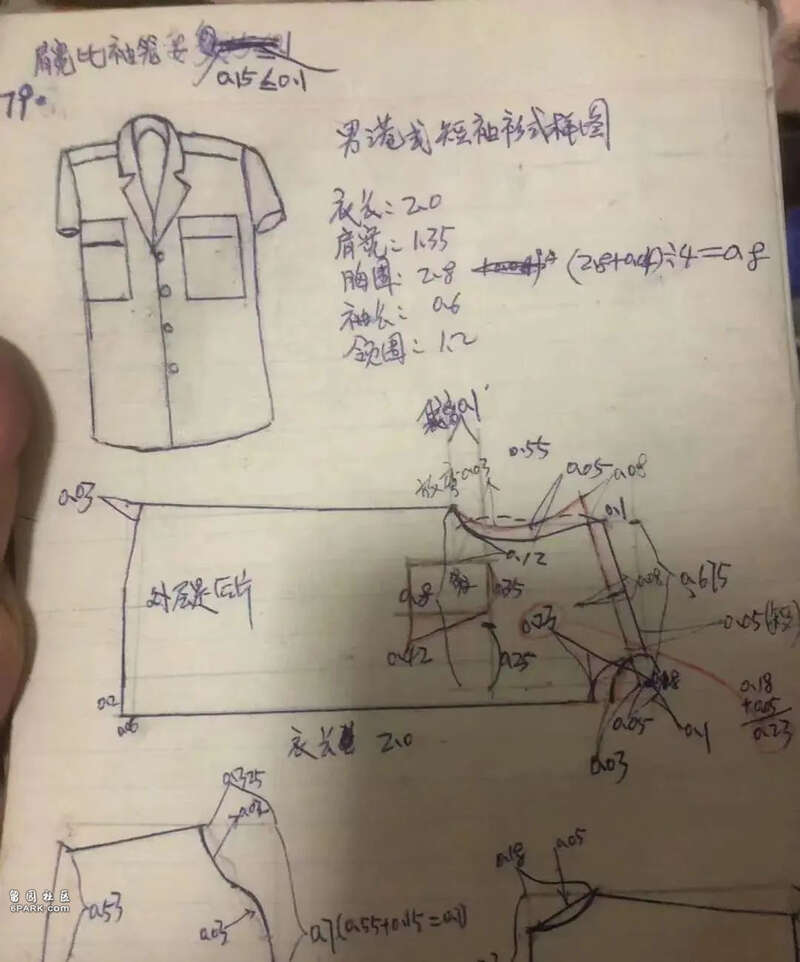 肩宽比袖笼
0.15≤0.1
79.
男港式短袖衫式样图
衣长：2.0
肩宽：1.35
胸围：2.8 (2.8+0.4)÷4=0.8
袖长：0.6
领围：1.2
0.1
放弯0.03
0.55
0.05
0.08
0.03
0.1
0.12
对层是后片
0.8
0.35
0.08
0.675
0.23
0.05
0.42
0.25
0.2
0.18
0.18
+0.05
0.23
0.05
0.1
0.03
衣长 2.0
0.325
0.03
0.53
0.03
0.7(0.55+0.15=0.7)
0.18
0.05
留园社区
6PARK.com